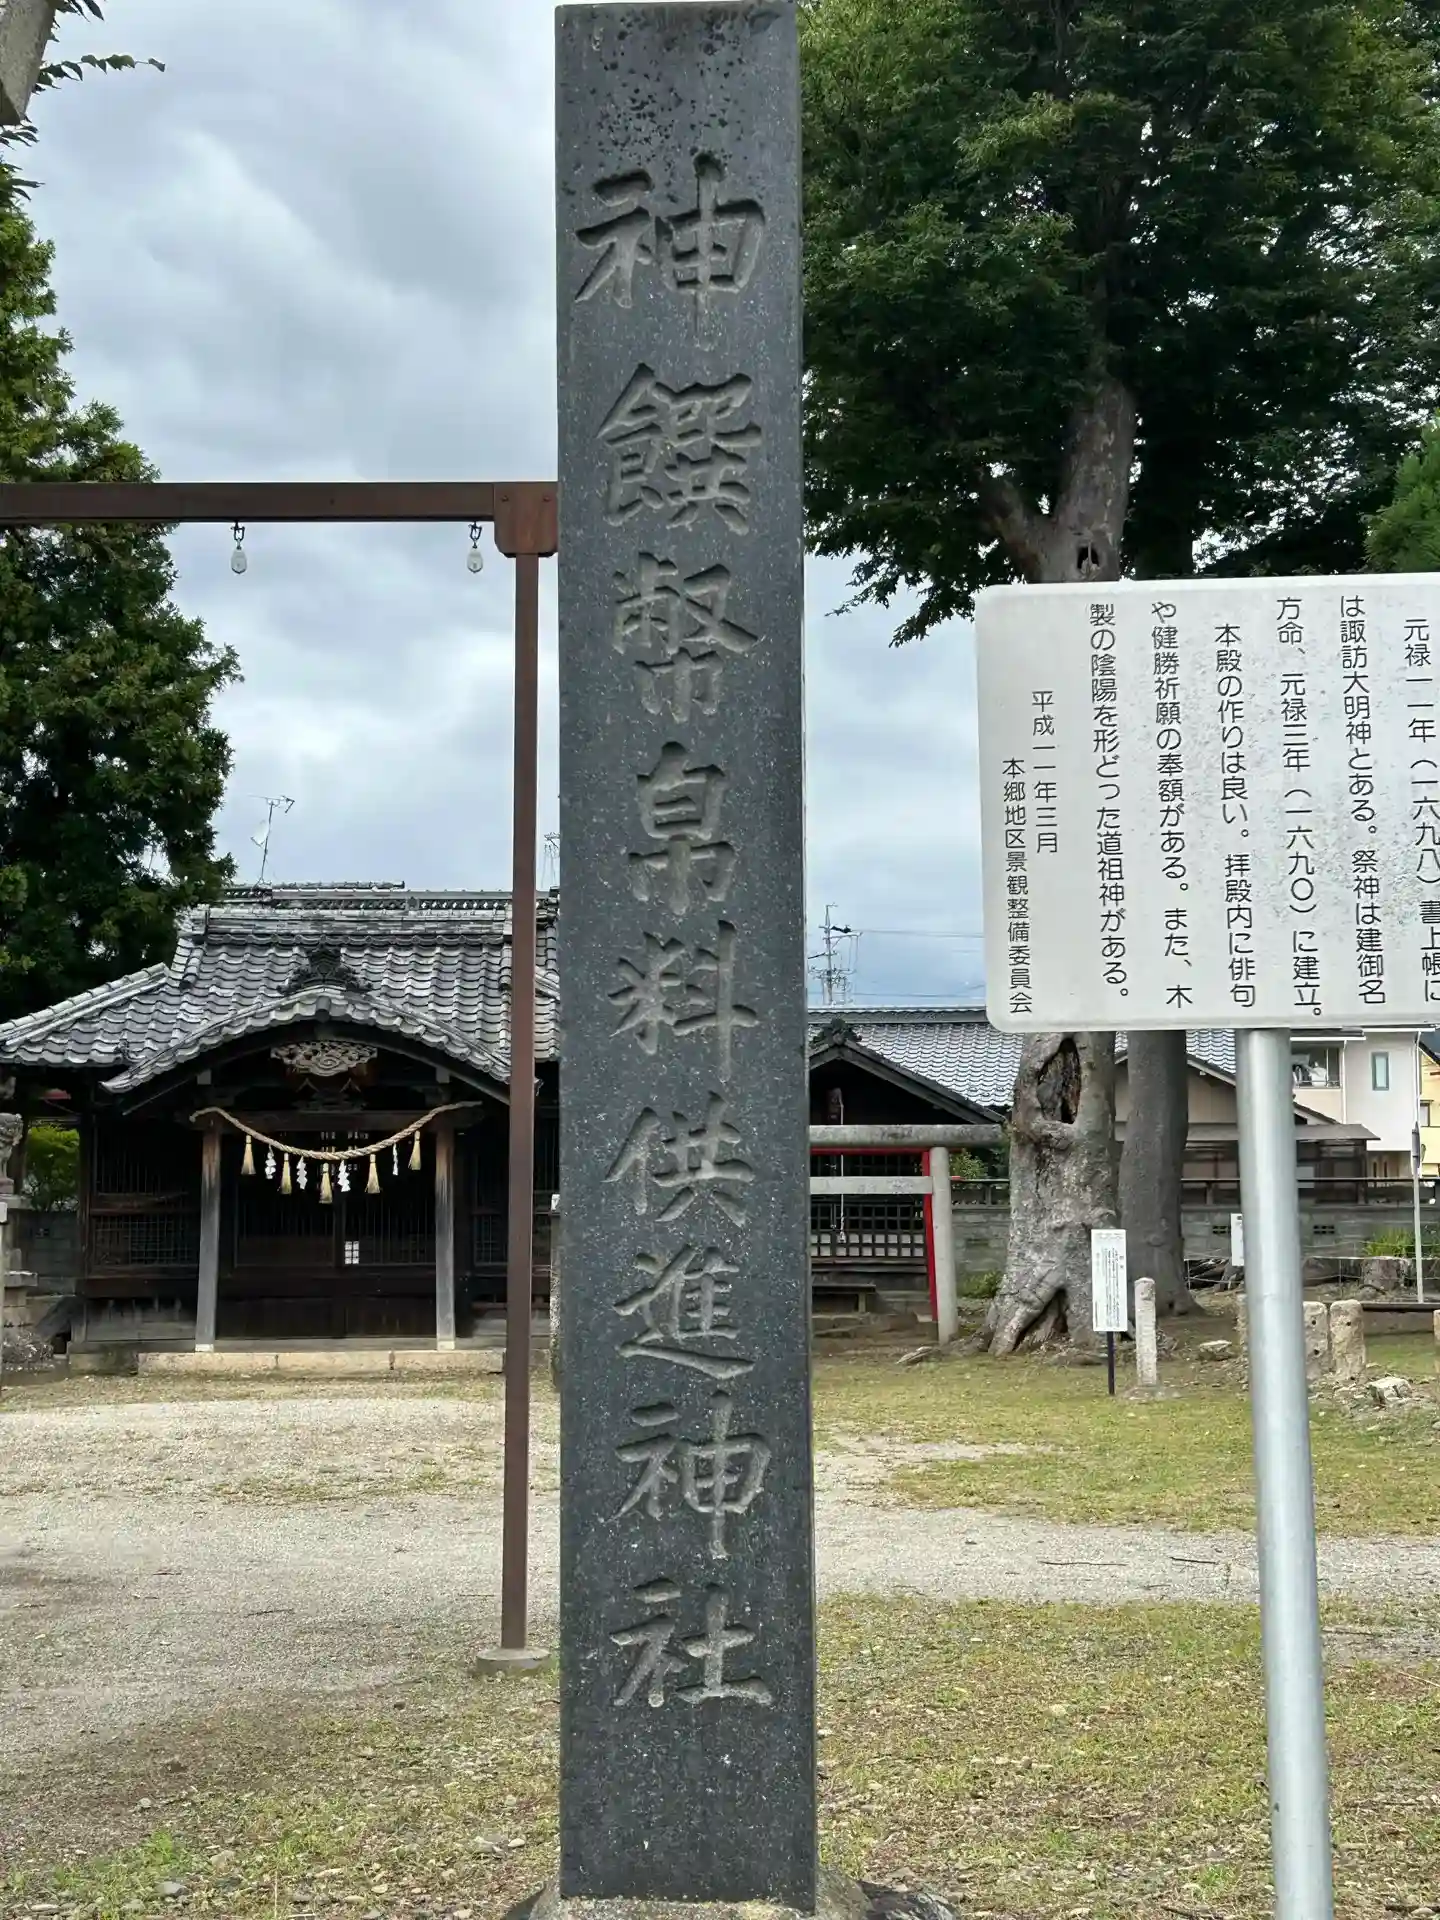 神饌幣帛料供進神社
元禄一一年（一六九八）書上帳に
は諏訪大明神とある。祭神は建御名
方命、元禄三年（一六九〇）に建立。
本殿の作りは良い。拝殿内に俳句
や健勝祈願の奉額がある。また、木
製の陰陽を形どった道祖神がある。
平成一一年三月
本郷地区景観整備委員会